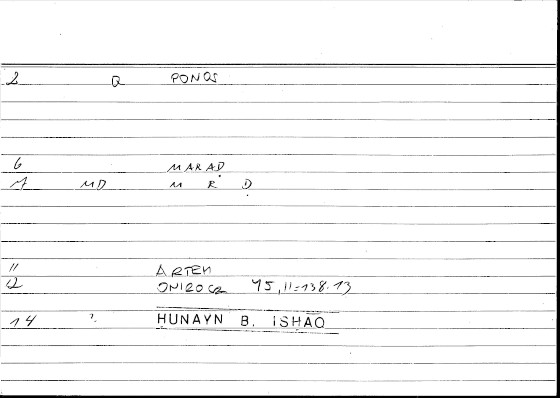 2 Q PONOS
6 MARAḌ
7 MD M R Ḍ
11 ARTEM
12 ONIROCR 75,11=138.13
14 HUNAYN B. ISHAQ